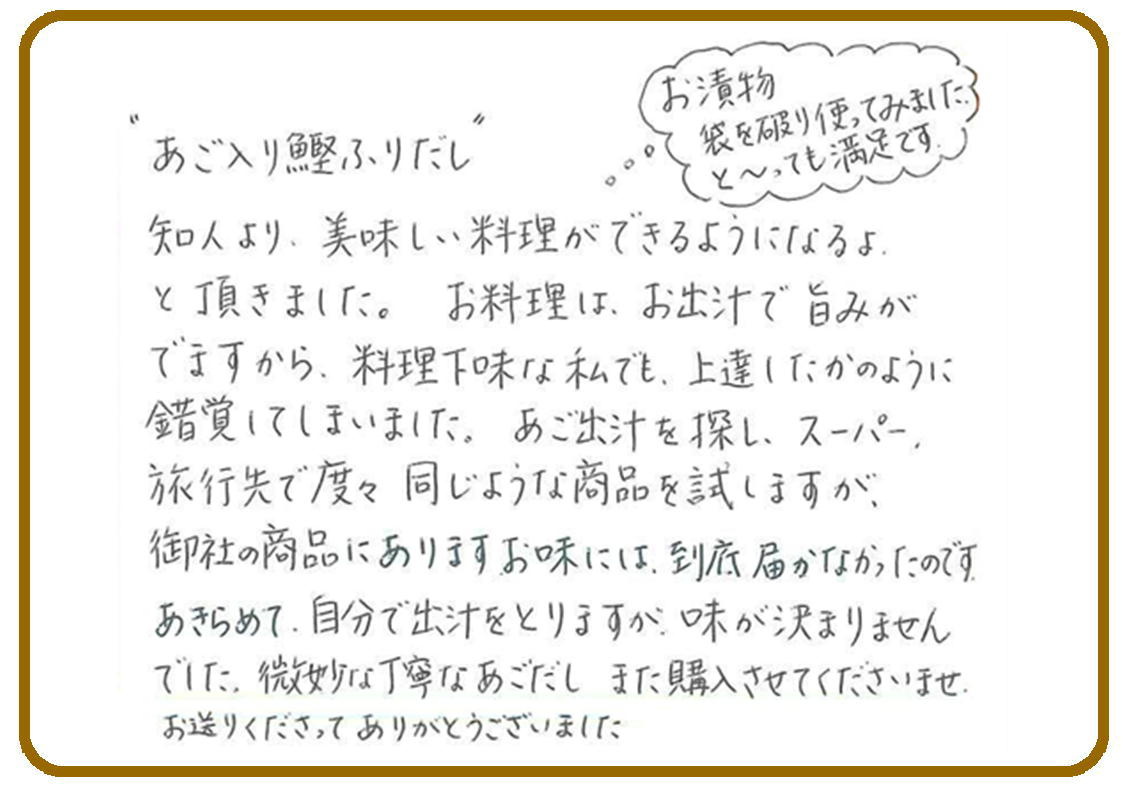 "あご入り鰹ふりだし"
お漬物
袋を破り使ってみました。
と〜っても満足です。
知人より、美味しい料理ができるようになるよ、
と頂きました。 お料理は、お出汁で旨みが
でますから、料理下味な私でも、上達したかのように
錯覚してしまいました。 あご出汁を探し、スーパー、
旅行先で度々同じような商品を試しますが、
御社の商品にありますお味には、到底届かなかったのです。
あきらめて、自分で出汁をとりますが、味が決まりません
でした。微妙な丁寧なあごだし また購入させてくださいませ。
お送りくださってありがとうございました